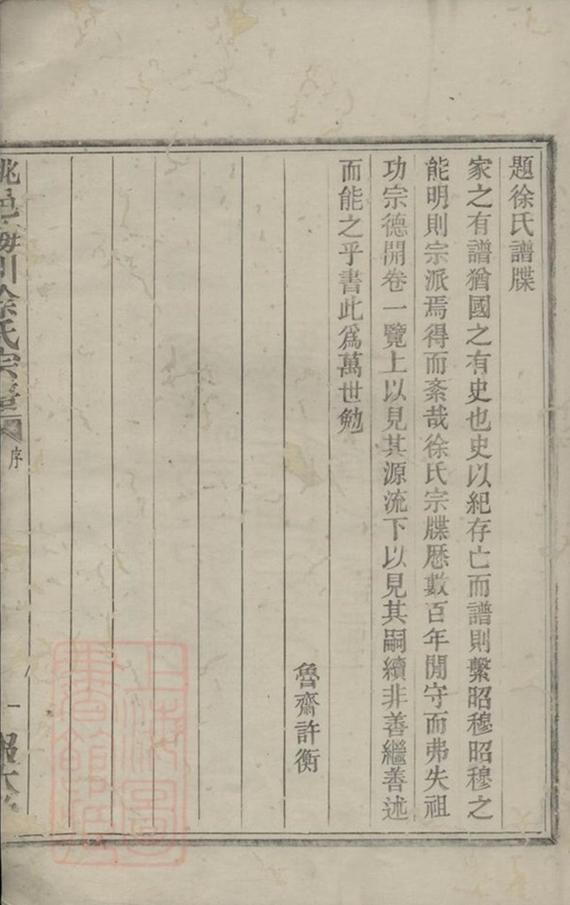 題徐氏譜牒
家之有譜猶國之有史也史以紀存亡而譜則繫昭穆昭穆之
能明則宗派焉得而紊哉徐氏宗牒歴數百年閒守而弗失祖
功宗德開卷一覽上以見其源流下以見其嗣續非善繼善述
而能之乎書此爲萬世勉
魯齋許衡
邑海川徐氏宗譜
序
一
上海圖
書館藏